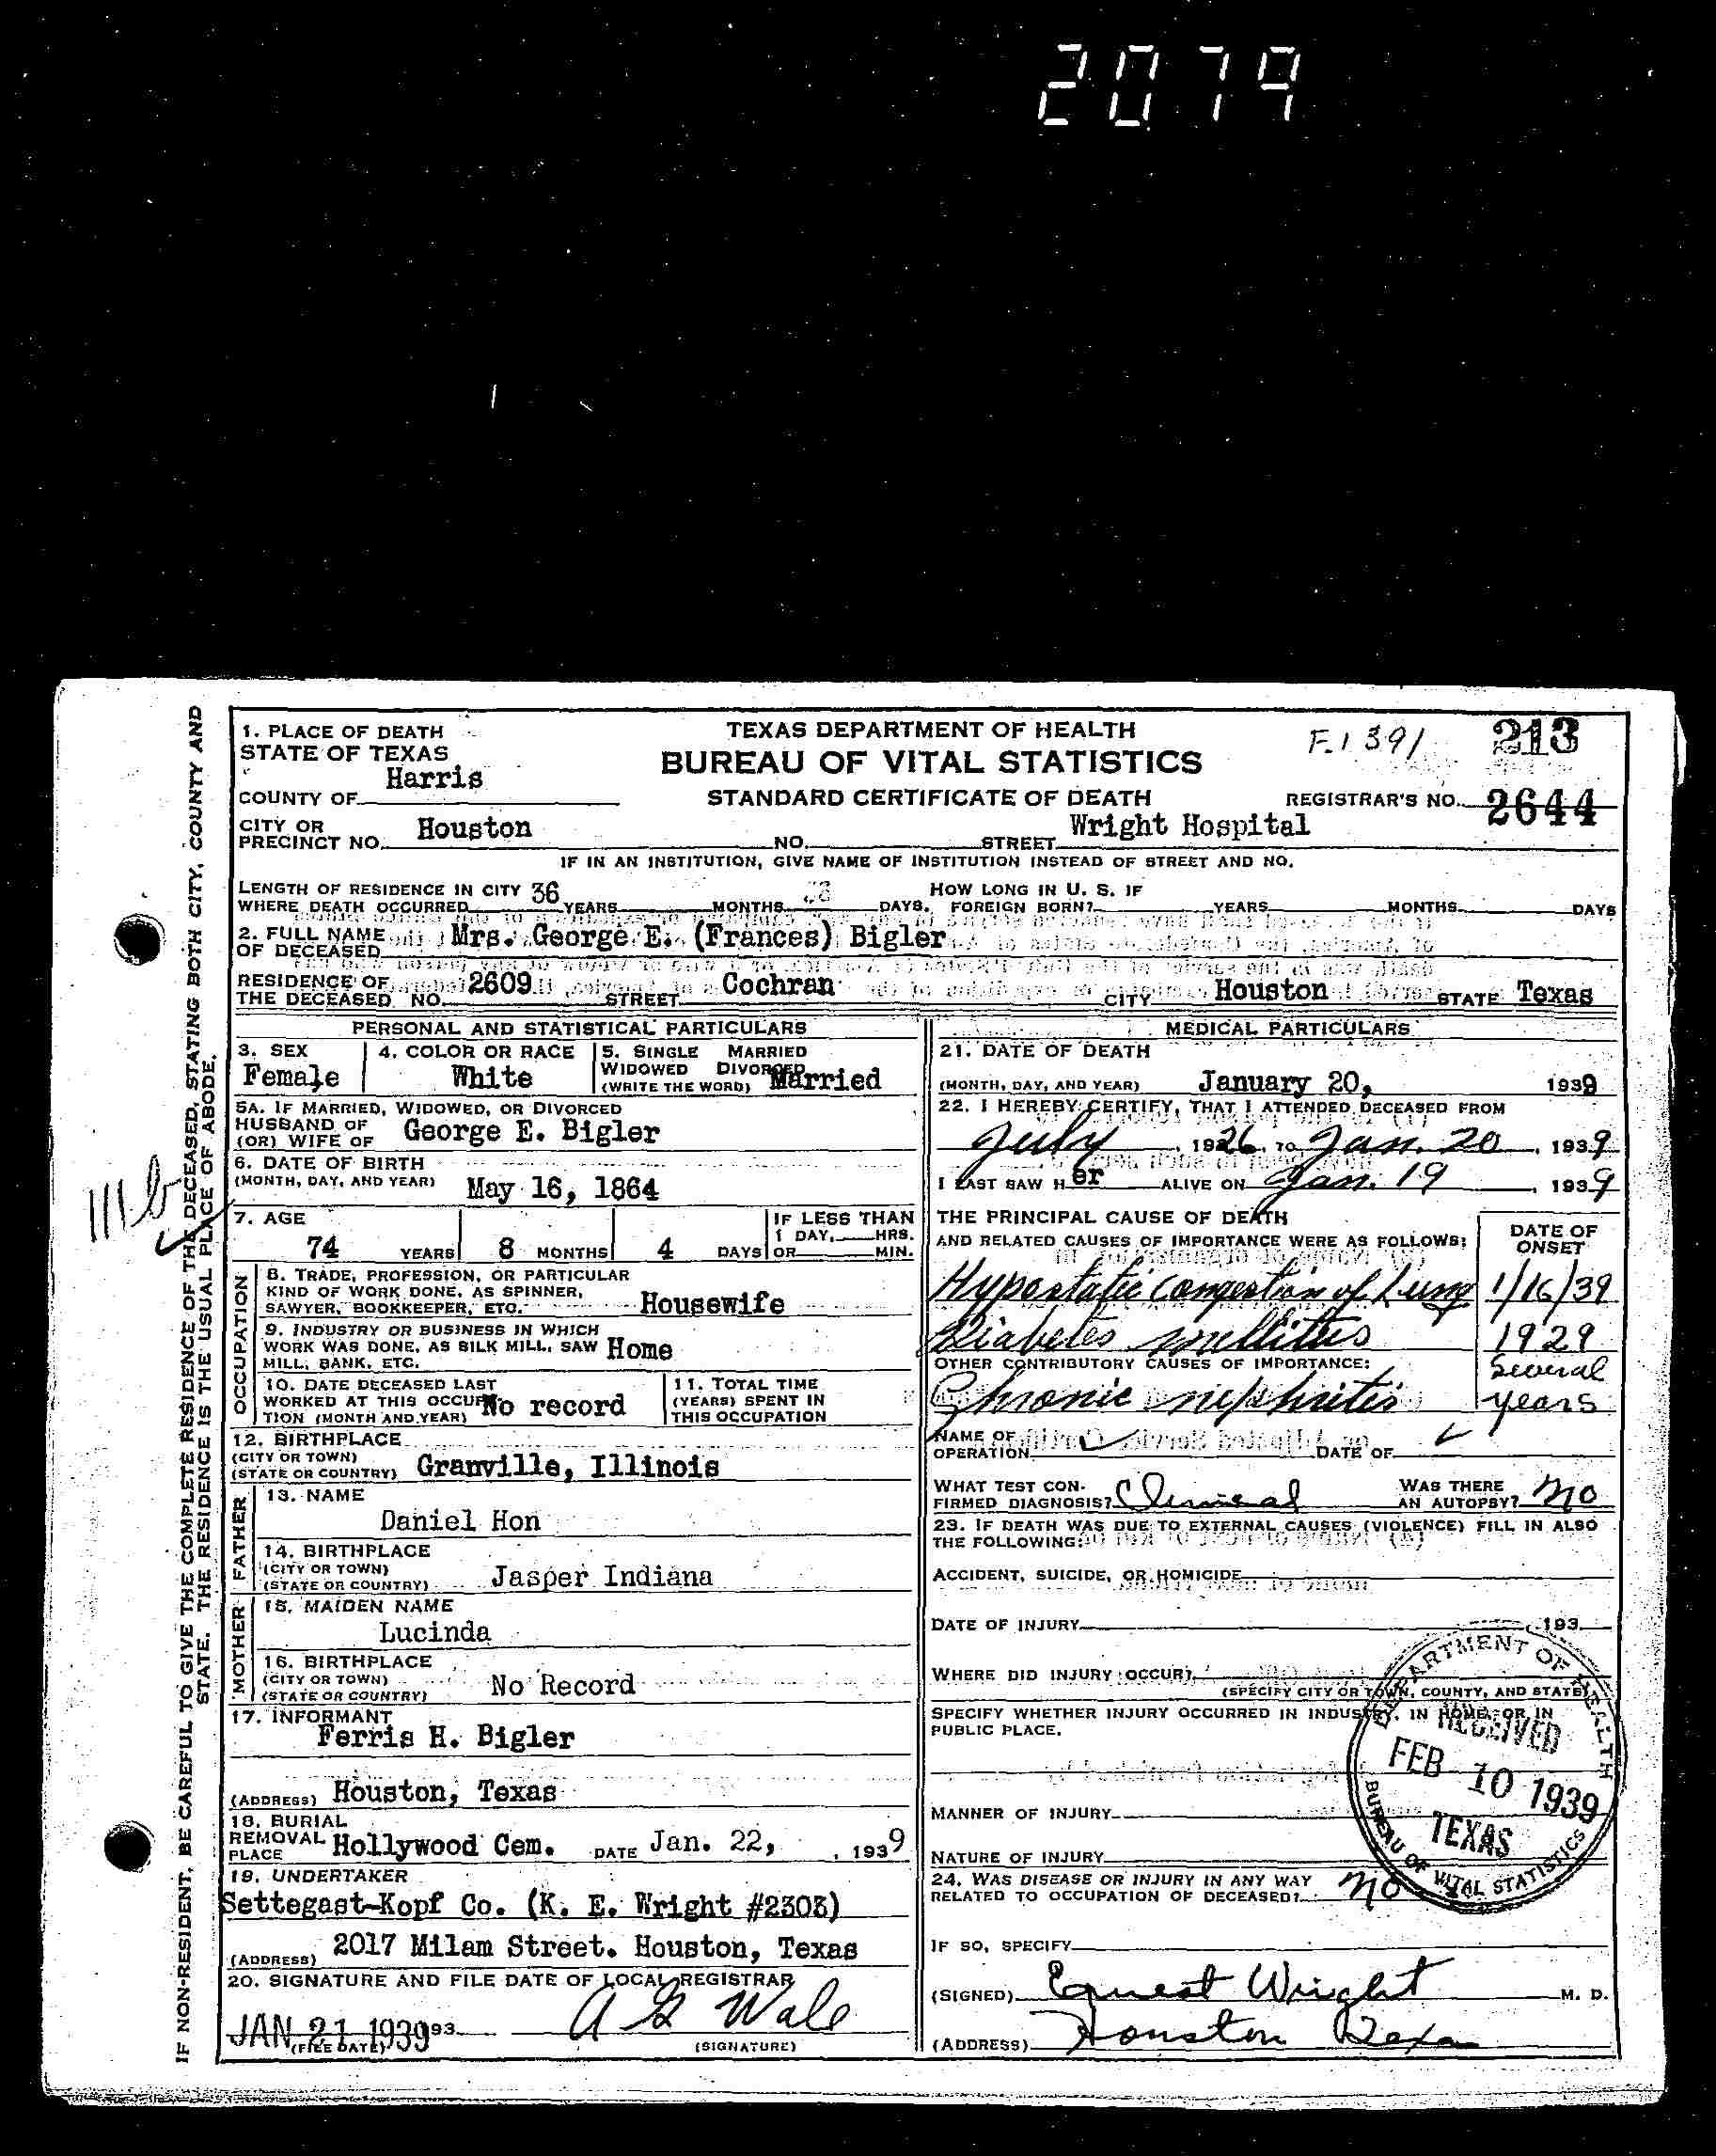 2079
1. PLACE OF DEATH
STATE OF TEXAS
COUNTY OF Harris
CITY OR PRECINCT NO. Houston
TEXAS DEPARTMENT OF HEALTH
BUREAU OF VITAL STATISTICS
STANDARD CERTIFICATE OF DEATH
F.1391
213
REGISTRAR'S NO. 2644
NO. STREET Wright Hospital
IF IN AN INSTITUTION, GIVE NAME OF INSTITUTION INSTEAD OF STREET AND NO.
LENGTH OF RESIDENCE IN CITY WHERE DEATH OCCURRED 36 YEARS MONTHS DAYS. HOW LONG IN U. S. IF FOREIGN BORN? YEARS MONTHS DAYS
2. FULL NAME OF DECEASED Mrs. George E. (Frances) Bigler
RESIDENCE OF THE DECEASED NO. 2609 STREET Cochran CITY Houston STATE Texas
PERSONAL AND STATISTICAL PARTICULARS
3. SEX Female
4. COLOR OR RACE White
5. SINGLE MARRIED WIDOWED DIVORCED (WRITE THE WORD) Married
5A. IF MARRIED, WIDOWED, OR DIVORCED
HUSBAND OF (OR) WIFE OF George E. Bigler
6. DATE OF BIRTH (MONTH, DAY, AND YEAR) May 16, 1864
7. AGE 74 YEARS 8 MONTHS 4 DAYS IF LESS THAN 1 DAY, HRS. OR MIN.
OCCUPATION
8. TRADE, PROFESSION, OR PARTICULAR KIND OF WORK DONE, AS SPINNER, SAWYER, BOOKKEEPER, ETC. Housewife
9. INDUSTRY OR BUSINESS IN WHICH WORK WAS DONE, AS SILK MILL, SAW MILL, BANK, ETC. Home
10. DATE DECEASED LAST WORKED AT THIS OCCUPATION (MONTH AND YEAR) No record
11. TOTAL TIME (YEARS) SPENT IN THIS OCCUPATION
12. BIRTHPLACE (CITY OR TOWN) (STATE OR COUNTRY) Granville, Illinois
FATHER
13. NAME Daniel Hon
14. BIRTHPLACE (CITY OR TOWN) (STATE OR COUNTRY) Jasper Indiana
MOTHER
15. MAIDEN NAME Lucinda
16. BIRTHPLACE (CITY OR TOWN) (STATE OR COUNTRY) No Record
17. INFORMANT Ferris H. Bigler
(ADDRESS) Houston, Texas
18. BURIAL REMOVAL PLACE Hollywood Cem. DATE Jan. 22, , 1939
19. UNDERTAKER
Settegast-Kopf Co. (K. E. Wright #2308)
(ADDRESS) 2017 Milam Street. Houston, Texas
20. SIGNATURE AND FILE DATE OF LOCAL REGISTRAR
JAN 21 1939 193 (FILE DATE)
(SIGNATURE)
MEDICAL PARTICULARS
21. DATE OF DEATH
(MONTH, DAY, AND YEAR) January 20, 1939
22. I HEREBY CERTIFY, THAT I ATTENDED DECEASED FROM
July , 1926, TO Jan. 20 , 1939
I LAST SAW Her ALIVE ON Jan. 19 , 1939
THE PRINCIPAL CAUSE OF DEATH
AND RELATED CAUSES OF IMPORTANCE WERE AS FOLLOWS: DATE OF ONSET
Hypostatic congestion of Lung 1/16/39
Diabetes mellitus 1929
OTHER CONTRIBUTORY CAUSES OF IMPORTANCE:
Chronic nephritis Several years
NAME OF OPERATION DATE OF
WHAT TEST CONFIRMED DIAGNOSIS? Clinical WAS THERE AN AUTOPSY? No
23. IF DEATH WAS DUE TO EXTERNAL CAUSES (VIOLENCE) FILL IN ALSO THE FOLLOWING:
ACCIDENT, SUICIDE, OR HOMICIDE
DATE OF INJURY , 193
WHERE DID INJURY OCCUR?
(SPECIFY CITY OR TOWN, COUNTY, AND STATE)
SPECIFY WHETHER INJURY OCCURRED IN INDUSTRY, IN HOME, OR IN PUBLIC PLACE.
MANNER OF INJURY
NATURE OF INJURY
24. WAS DISEASE OR INJURY IN ANY WAY RELATED TO OCCUPATION OF DECEASED? No
IF SO, SPECIFY
(SIGNED) Ernest Wright M. D.
(ADDRESS) Houston Texa
DEPARTMENT OF HEALTH
RECEIVED
FEB 10 1939
TEXAS
BUREAU OF VITAL STATISTICS
IF NON-RESIDENT, BE CAREFUL TO GIVE THE COMPLETE RESIDENCE OF THE DECEASED, STATING BOTH CITY, COUNTY AND
STATE. THE RESIDENCE IS THE USUAL PLACE OF ABODE.